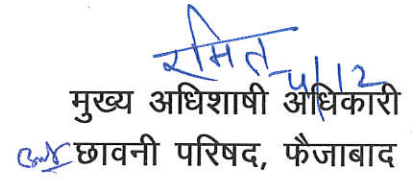 रमित
4/12
मुख्य अधिशाषी अधिकारी
छावनी परिषद, फैजाबाद